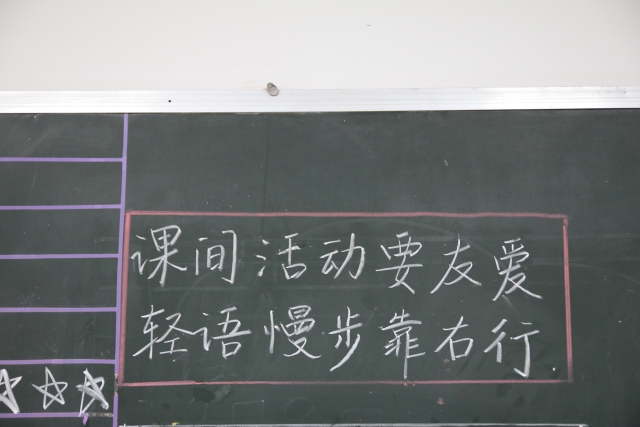 课间活动要友爱
轻语慢步靠右行